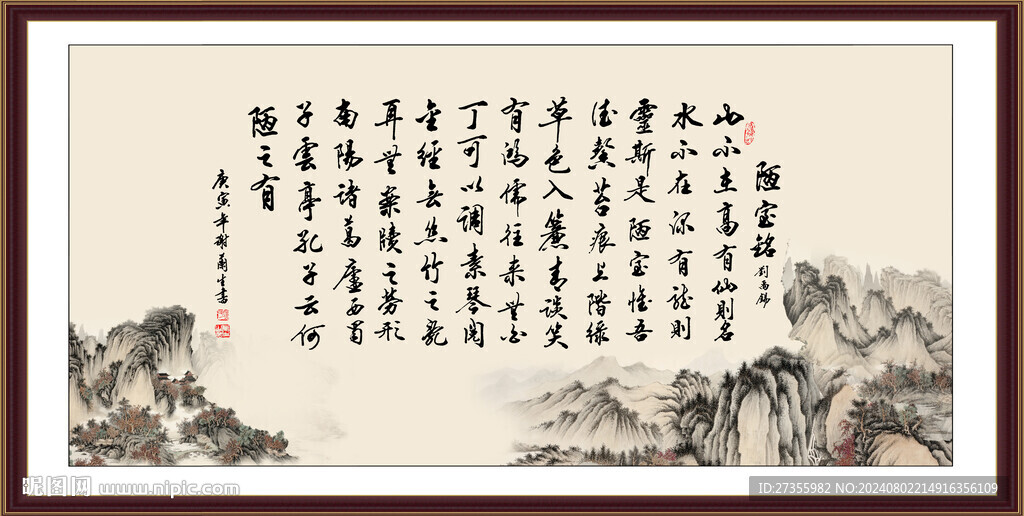 陋室銘
劉禹錫
山不在高有仙則名
水不在深有龍則
靈斯是陋室惟吾
德馨苔痕上階綠
草色入簾青談笑
有鴻儒往來無白
丁可以調素琴閱
金經無絲竹之亂
耳無案牘之勞形
南陽諸葛廬西蜀
子雲亭孔子云何
陋之有
庚寅年謝生書
昵图网 www.nipic.com
ID:27355982 NO:20240802214916356109